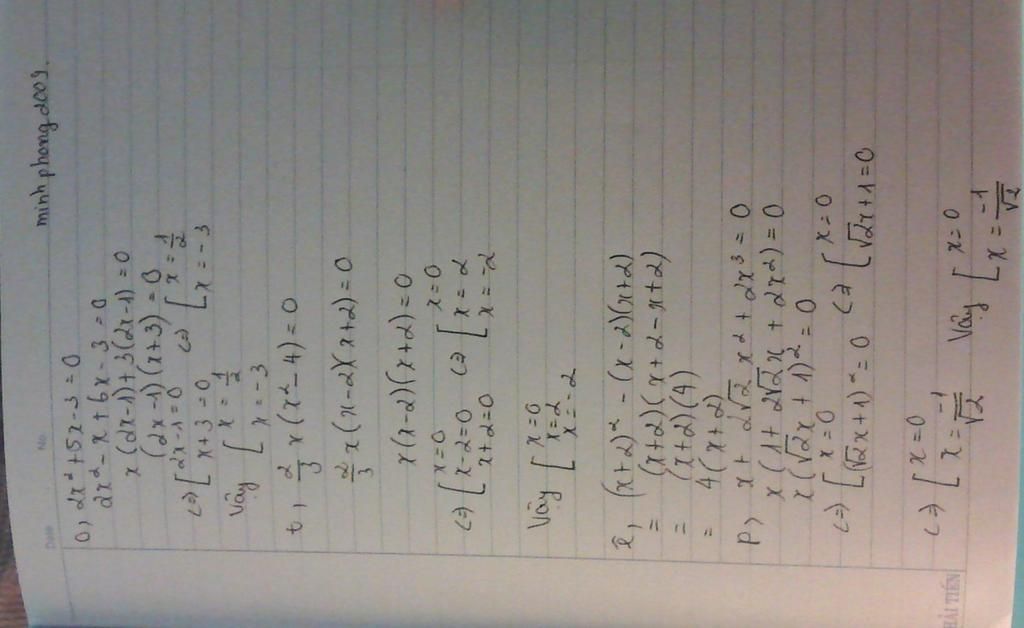 minhphong2009.
Date No.
0, 2x² + 5x - 3 = 0
2x² - x + 6x - 3 = 0
x(2x-1) + 3(2x-1) = 0
(2x-1)(x+3) = 0
<=> [2x-1=0 <=> [x = 1/2
[x+3=0 [x = -3
Vậy [x = 1/2
[x = -3
t, 2/3 x(x² - 4) = 0
2/3 x(x-2)(x+2) = 0
x(x-2)(x+2) = 0
[x=0 [x=0
<=> [x-2=0 <=> [x=2
x+2=0 x=-2
Vậy [x=0
x=2
x=-2
(x+2)² - (x-2)(x+2)
= (x+2)(x+2-x+2)
= (x+2)(4)
= 4(x+2)
P, x + 2√2 x² + 2x³ = 0
x(1 + 2√2x + 2x²) = 0
x(√2x + 1)² = 0
<=> [x=0 <=> [x=0
[(√2x+1)² = 0 [√2x+1=0
<=> [x=0
[x = -1/√2
Vậy [x=0
[x = -1/√2
HẢI TIẾN